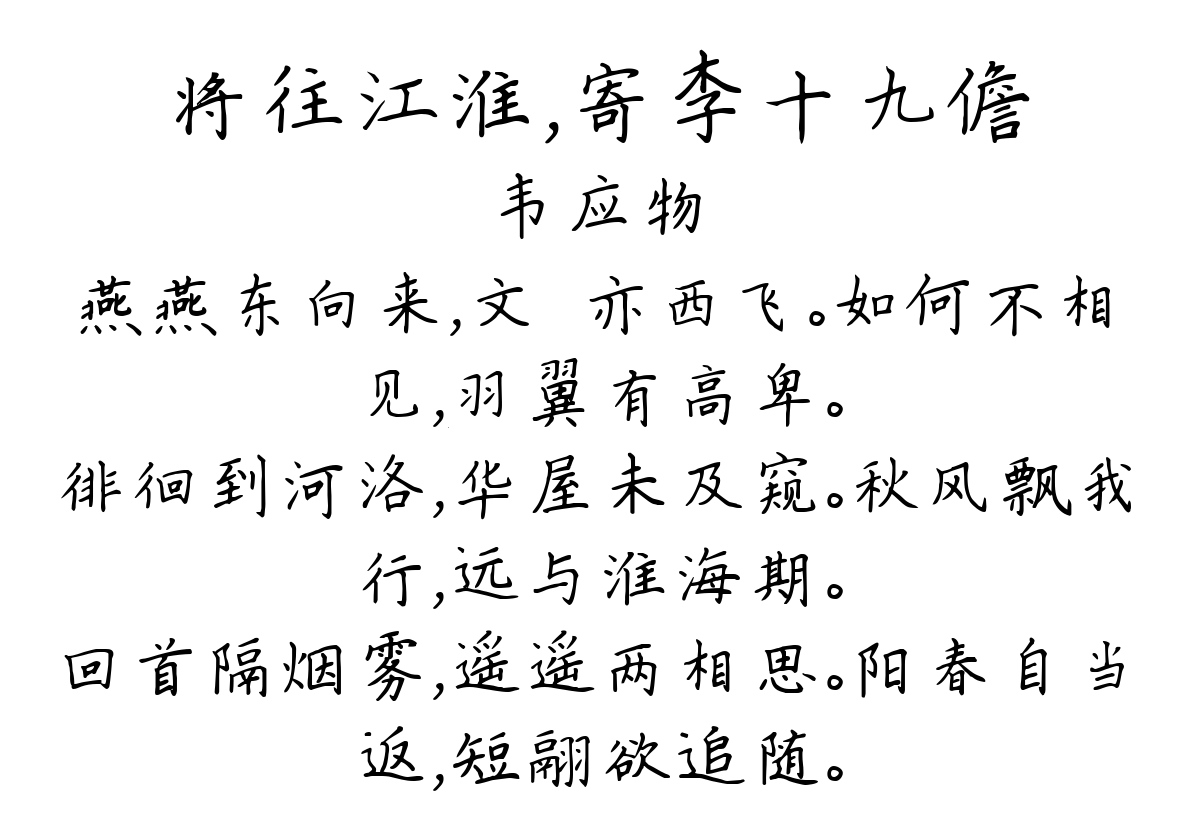 将往江淮,寄李十九儋
韦应物
燕燕东向来,文 亦西飞。如何不相
见,羽翼有高卑。
徘徊到河洛,华屋未及窥。秋风飘我
行,远与淮海期。
回首隔烟雾,遥遥两相思。阳春自当
返,短翮欲追随。